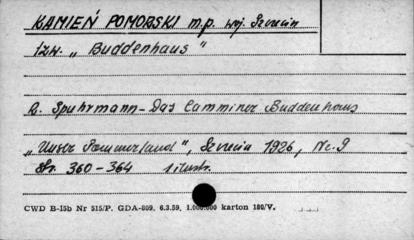 KAMIEŃ POMORSKI m.p. woj. Szczecin
tzw. „Buddenhaus"
R. Spuhrmann - Das Camminer Buddenhaus
„Unser Pommerland", Szczecin 1926, Nr. 9
Str. 360-364 1 ilustr.
CWD B-15b Nr 515/P. GDA-809. 6.3.59. 1.000.000 karton 180/V.